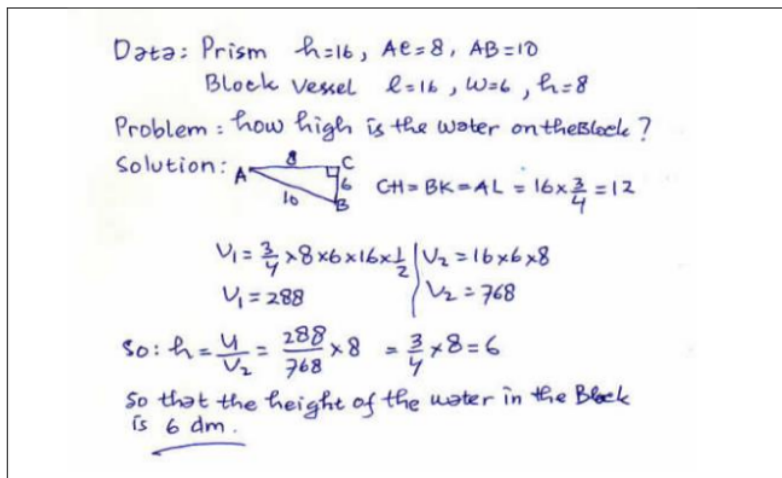 Data: Prism h=16, AC=8, AB=10
Block Vessel l=16, w=6, h=8
Problem: how high is the water on the Block?
Solution: A 8 C 6 10 B CH=BK=AL=16×3/4=12
V₁=3/4×8×6×16×1/2 V₂=16×6×8
V₁=288 V₂=768
So: h=V₁/V₂=288/768×8=3/4×8=6
So that the height of the water in the Block
is 6 dm.